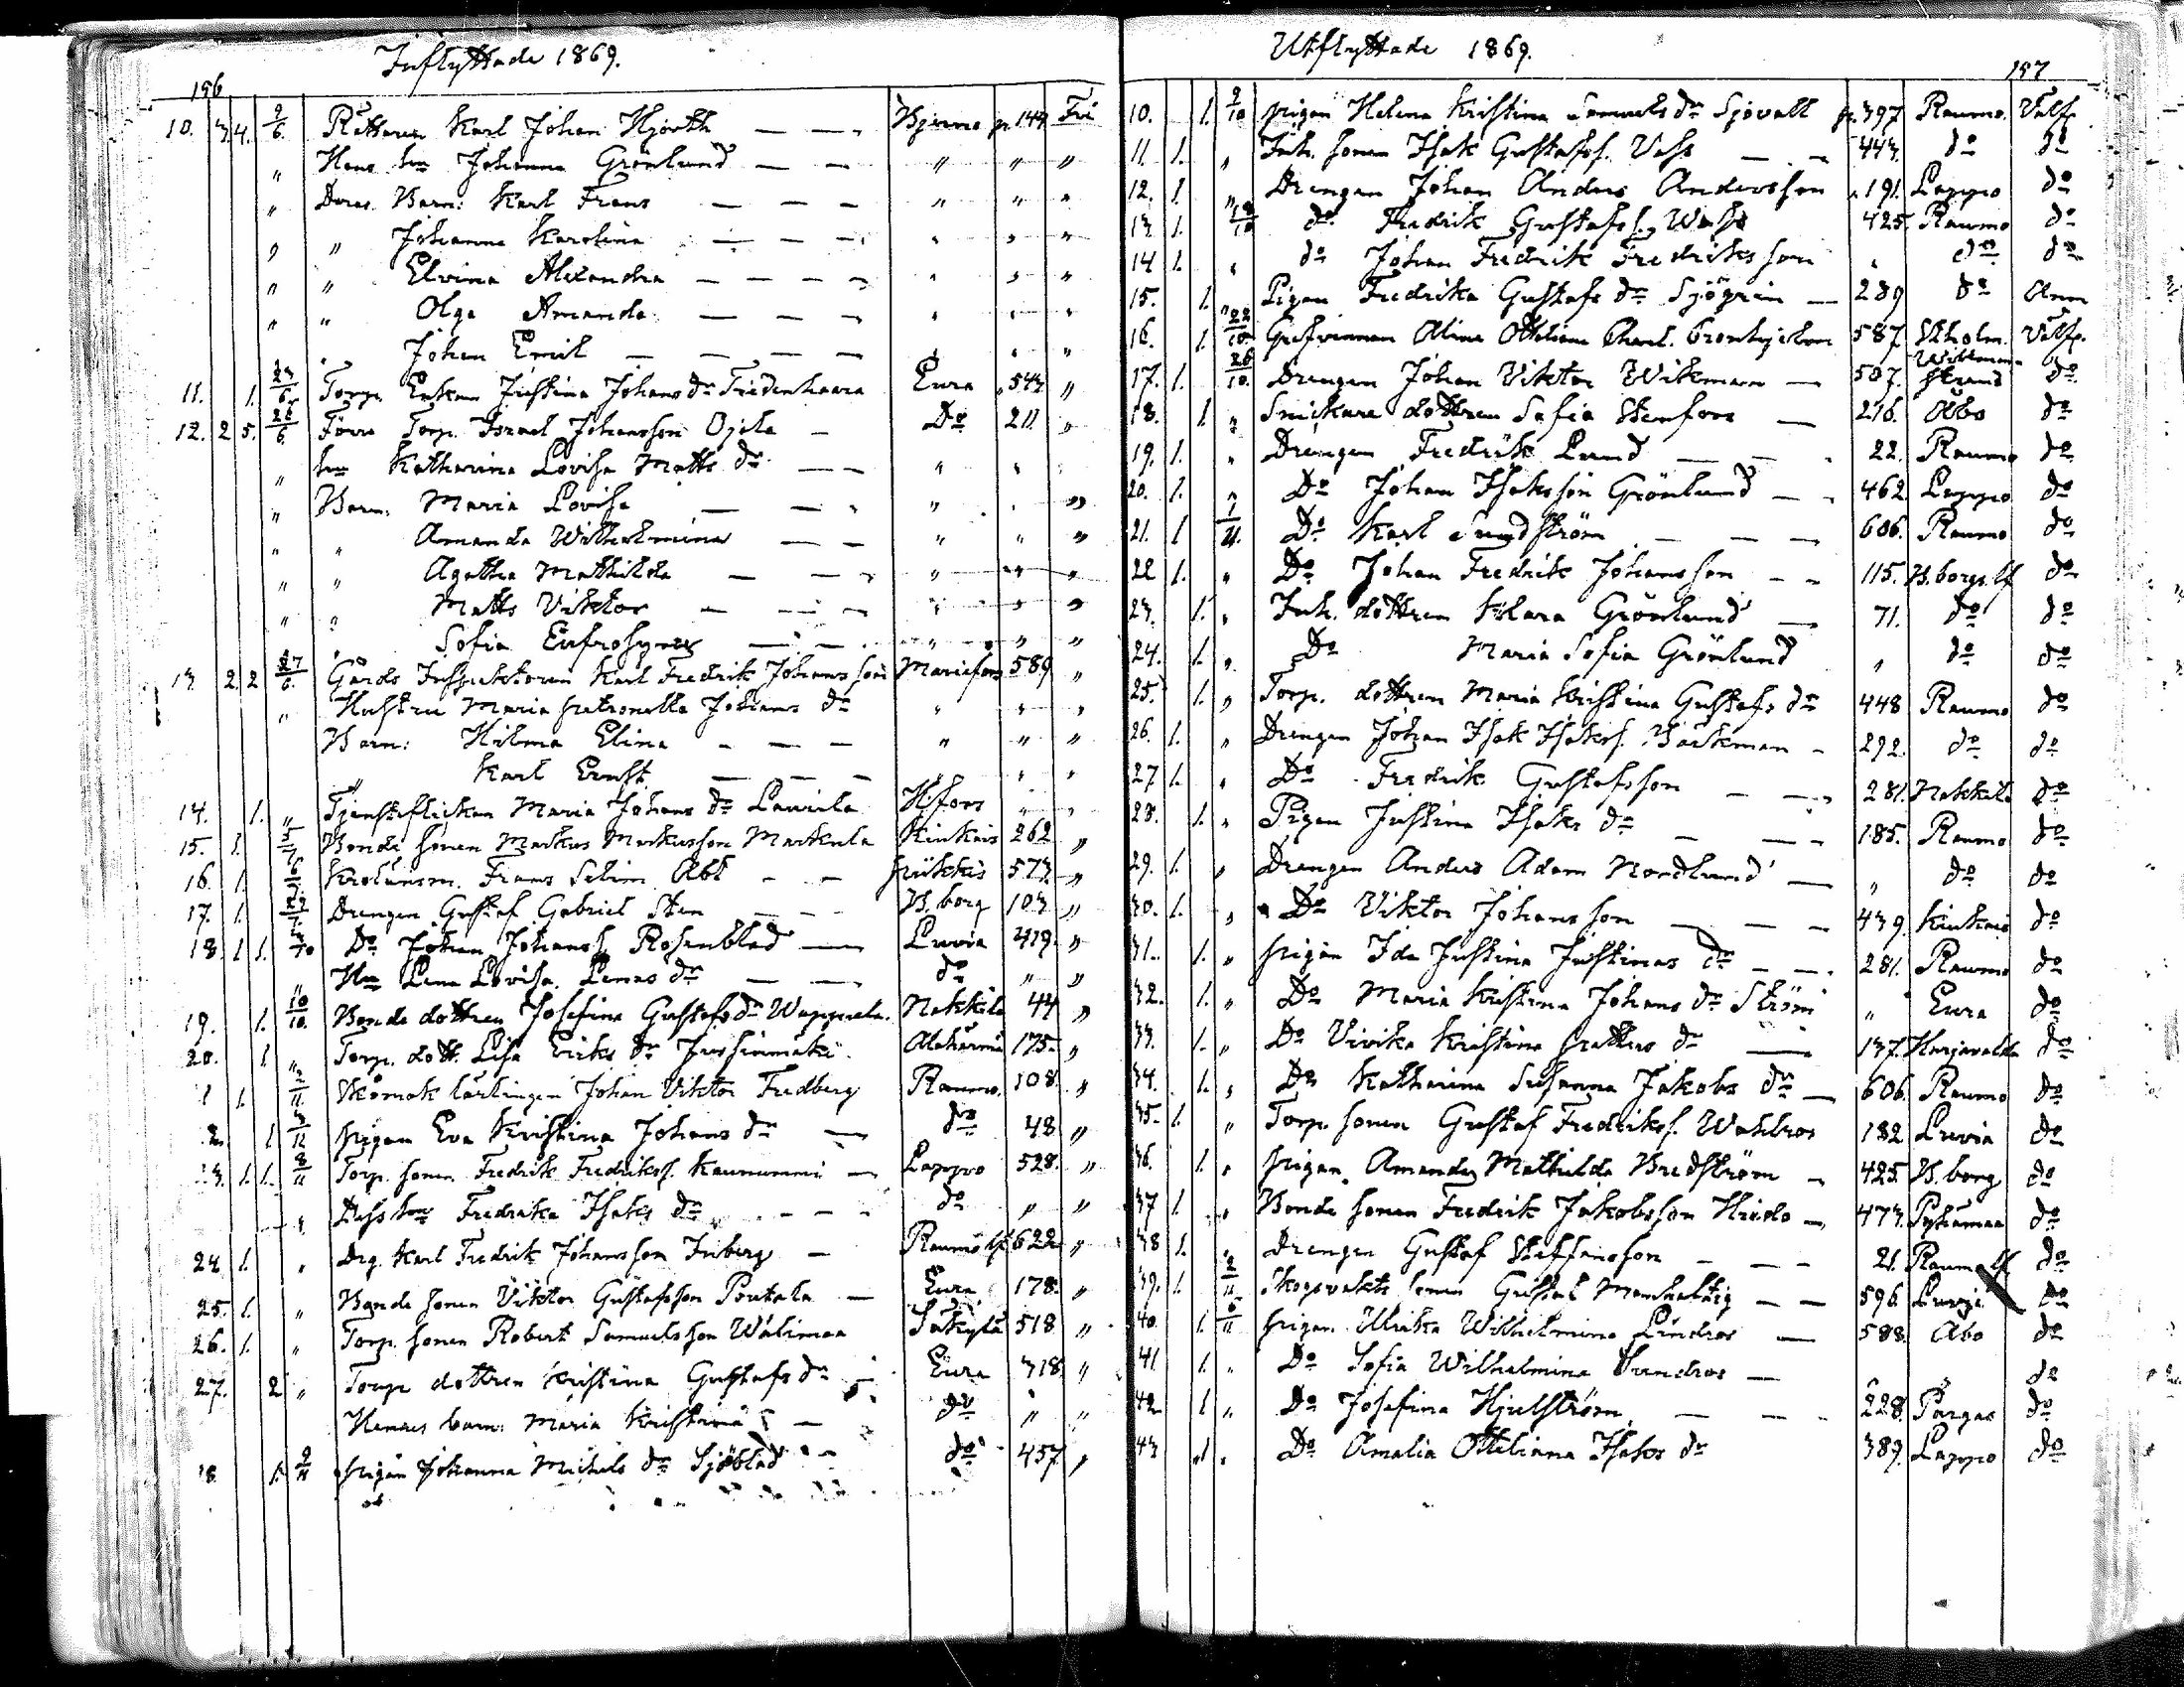 Inflyttade 1869.
196
10. 3. 4. 9/6. Rättaren Karl Johan Hjorth — — Bjerno p. 143 Fri
" Hans hru Johanna Grönlund — — " " "
" Deras Barn: Karl Frans — — — " " "
" " Johanna Karolina — — — " " "
" " Elvina Alexandra — — — — " " "
" " Olga Amanda — — — " " "
" Johan Emil — — — — " " "
11. 1. 23/6. Torp. Enkan Justina Johans dr Fridenhaara Eura 543 "
12. 2 5. 26/6. Förre Torp. Israel Johansson Ojila — Do 211. "
" hru Katharina Lovisa Matts dr — — " " "
" Barn: Maria Lovisa — — " " "
" " Amanda Wilhelmina — — " " "
" " Agatha Mathilda — — " " "
" " Matts Viktor — — — " " "
" Sofia Eufrosyne — — " " "
13. 2. 2 27/6. Gårds Inspektoren Karl Fredrik Johansson Mariefors 589 "
" Hustru Maria Petronella Johans dr " " "
Barn: Hilma Elina — — — " " "
" Karl Ernst — — — " " "
14. 1. " Tjenstflickan Maria Johans dr Laurila H:fors " "
15. 1. Bonde sonen Markus Markusson Markula Kiukais 262 "
16. 1. Frans Selim Abt — — Pikkis 573 "
17. 1. Drengen Gustaf Gabriel Sten — — B. borg 103 "
18 1 1. Do Johan Johanss. Rosenblad — Luvia 419 "
" Hru Lena Lovisa Lenas dr — — do " "
19. 1. 10/10. Bonde dottren Josefina Gustafs dr Nakkila 44 "
20. 1 " Torp. dott. Lisa Eriks dr Jussinmäki Alahärmä 175. "
1 1. 2/11. Skomak. lärlingen Johan Viktor Fredberg Raumo. 108. "
2. 1 3/11 Pigan Eva Kristina Johans dr — do 48 "
23. 1. 1. 8/11 Torp. sonen Fredrik Fredrikss. Kaunummi — Lappo 528. "
" Dess hru Fredrika Isaks dr — — — do " "
24 1. " Drg. Karl Fredrik Johansson Inberg — Raumo lf. 622 "
25. 1. " Bonde sonen Viktor Gustafsson Poutala — Eura 178. "
26. 1. " Torp. sonen Robert Samuelsson Wälimaa Säkylä 518 "
27. 2 " Torp. dottren Kristina Gustafs dr — Eura 318 "
Hennes barn: Maria Kristina — do " "
18 1. 9/11 Pigan Johanna Mickels dr Sjöblad — do 457 "
Utflyttade 1869.
197
10. 1. 9/10 Pigan Helena Kristina Samuels dr Sjövall p. 397 Raumo. Välfr.
11. 1. " Inh. sonen Isak Gustafss. Vass — — 443. do do
12. 1. " Drengen Johan Anders Andersson " 191. Lappo do
13. 1. do Fredrik Gustafss. Wass 425. Raumo do
14 1. " do Johan Fredrik Fredriksson " do do
15. 1. " Pigan Fredrika Gustafs dr Sjögren — 289 do Ann
16. 1. 22/10. Grefvinnan Alma Ottiliana Charl. Cronhjelm 587. Stholm. Välfr.
17. 1. 26/10. Drengen Johan Viktor Wikman — 507. Willmanstrand do
18. 1. " Snickare dottren Sofia Stenfors — 216. Åbo do
19. 1. " Drengen Fredrik Lund — — 22. Raumo do
20. 1. " Do Johan Isaksson Grönlund — — 462. Lappo do
21. 1 1/11. Do Karl Sundström — — — 606. Raumo do
22 1. " Do Johan Fredrik Johansson — — 115. B. borgs lf do
23. 1. " Inh. dottren Klara Grönlund — 71. do do
24. 1. " Do Maria Sofia Grönlund " do do
25. 1. " Torp. dottren Maria Kristina Gustafs dr 448 Raumo do
26. 1. " Drengen Johan Isak Isakss. Bäckman — 292. do do
27 1. " Do Fredrik Gustafsson — — 281. Nakkila do
28. 1. " Pigan Justina Isaks dr — — 185. Raumo do
29. 1. " Drengen Anders Adam Nordlund — " do do
30. 1. " Do Viktor Johansson — — — 439. Kiukais do
31. 1. " Pigan Ida Justina Justinas dr — — 281. Raumo do
32. 1. " Do Maria Kristina Johans dr Ström " Eura do
33. 1. " Do Vivika Kristina Petters dr — 137. Harjavalda do
34. 1. " Do Katharina Susanna Jakobs dr — 606. Raumo do
35. 1. " Torp. sonen Gustaf Fredrikss. Wahlros 182 Luvia do
36. 1. " Pigan Amanda Mathilda Bredström — 425. B. borg do
37 1. " Bonde sonen Fredrik Jakobsson Hirdo — 473. Pyhämaa do
38 1. " Drengen Gustaf Staffansson — — — 21. Raumo lf do
39. 1. 2/11 Skogvakts sonen Gustaf — — 596. Luvia do
40. 1. 6/11 Pigan Ulrika Wilhelmina Lindros — 588. Åbo do
41 1. " Do Sofia Wilhelmina — " do
42 1 " Do Josefina Hjelström — — — 228. Pargas do
43 1 " Do Amalia Ottiliana Isaks dr 389. Lappo do